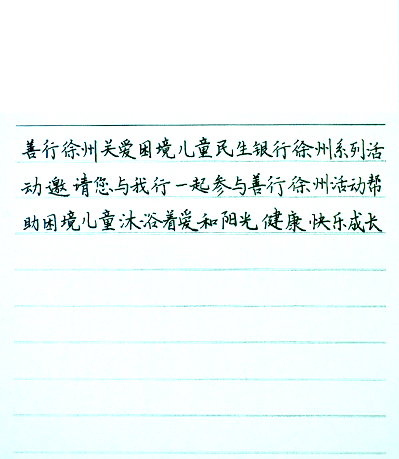 善行徐州关爱困境儿童民生银行徐州系列活
动邀请您与我行一起参与善行徐州活动帮
助困境儿童沐浴着爱和阳光健康快乐成长